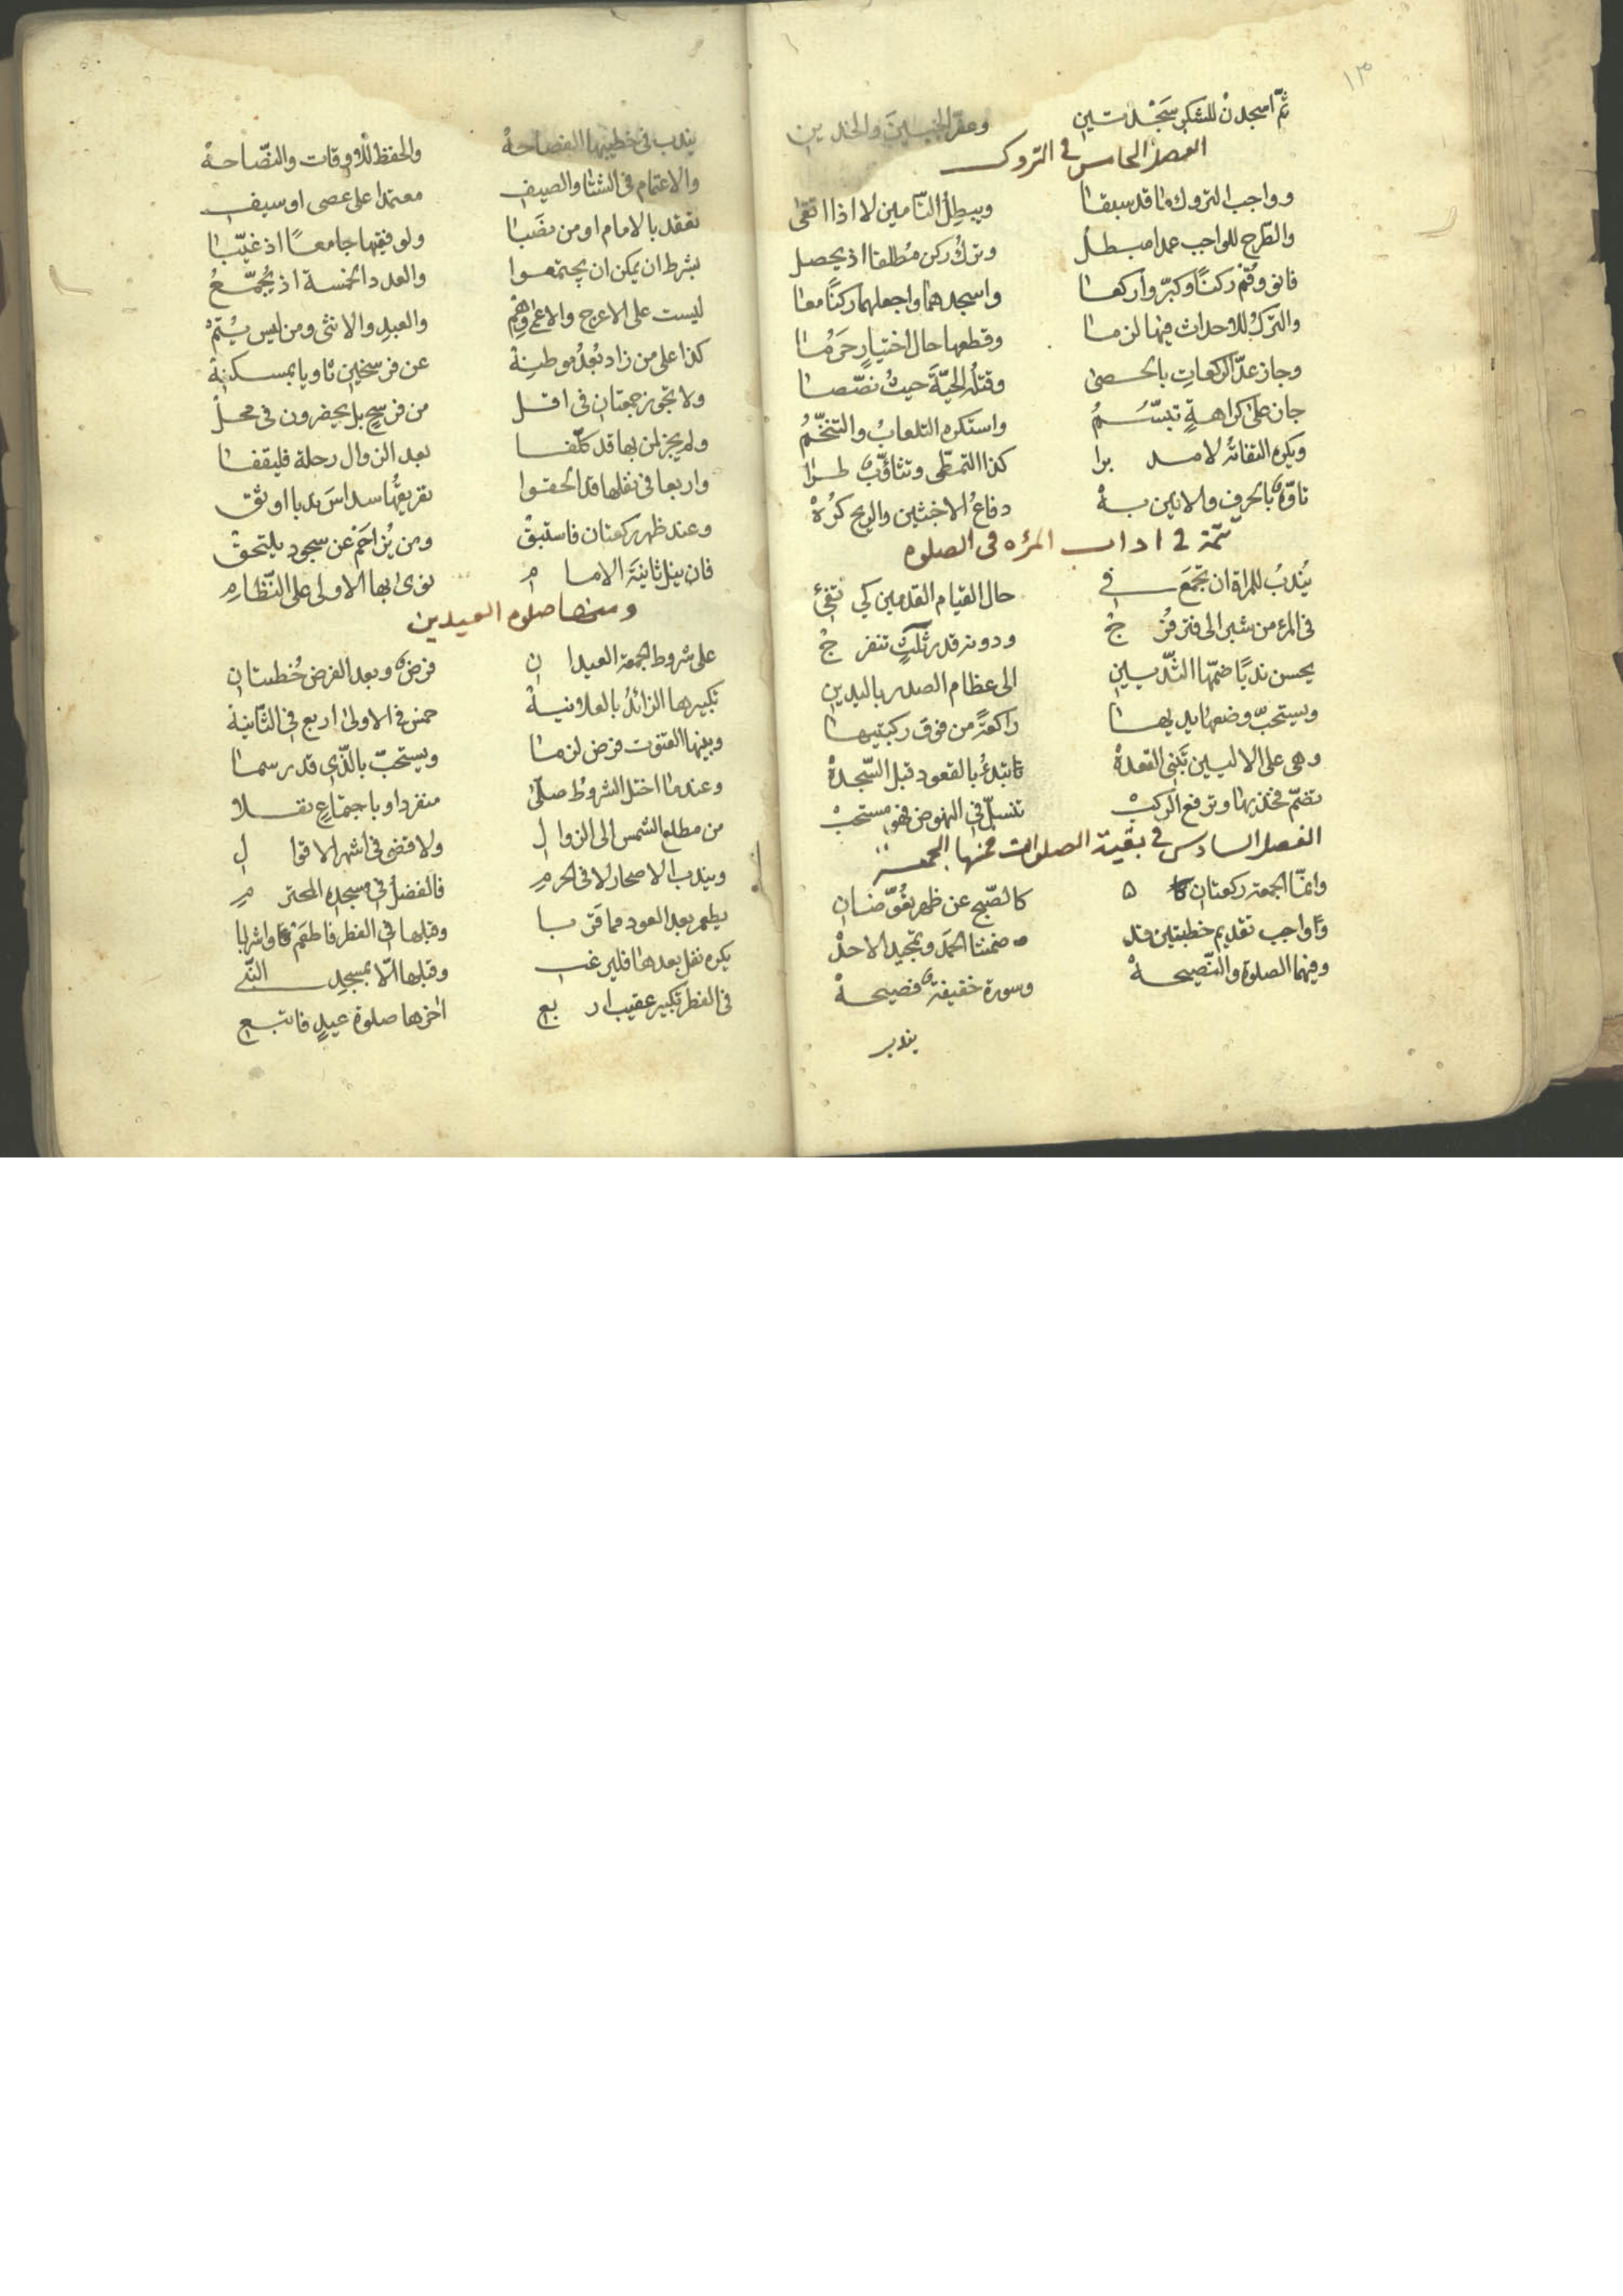 ١٣
ثمّ اسجدن للشكر سجدتين وعفّر الجبين والخدين
الفصل الخامس في التروك
وواجب التروك ما قد سبقا ويبطل التامين لا اذا اتقى
والطرح للواجب عمدا مبطل وترك ركن مطلقا اذ يحصل
فانو وقم ركنا وكبّر واركعا واسجدهما واجعلهما ركنا معا
والترك للاحداث فيها لزما وقطعها حال اختيار حرما
وجاز عدّ الركعات بالحصى وقتله الحيّة حيث نصّصا
جاز على كراهة تبسّم واستكره التلعاب والتنخّم
ويكره التفاته لا مدبرا كذا التمطّى وتثاؤب طرا
تاوّه بالحرف والانين به دفاع الاخبثين والريح كره
تتمة في اداب المرءه في الصلوة
يندب للمراة ان تجمع في حال القيام القدمين كي تفئ
في المرء من شبر الى فتر فرج ودونه قدر ثلث تنفرج
يحسن نديا ضمّها الثديين الى عظام الصدر باليدين
ويستحبّ وضعها يديها راكعة من فوق ركبتيها
وهى على الاليين تبنى القعدة تابتدئ بالقعود قبل السّجدة
تضمّ فخذيها وترفع الركب تنسلّ في النهوض فهو مستحب
الفصل السادس في بقية الصلوات فمنها الجمعة
وانّما الجمعة ركعتان كالصّبح عن ظهر يفوّضنان
وواجب تقديم خطبتين قد ضمنتا الحمد وتمجيد الاحد
وفيهما الصلوة والنّصيحة وسورة خفيفة فصيحة
يندب
يندب في خطيبها الفصاحة والحفظ للاوقات والنصّاحة
والاعتمام في الشتا والصيف معتمدا على عصى او سيف
تعقد بالامام او من نصبا ولو فقيها جامعا اذ غيّبا
بشرط ان يمكن ان يجتمعوا والعدد الخمسة اذ يجمّع
ليست على الاعرج والاعمى وهم والعبد والانثى ومن ليس يتم
كذا على من زاد بعد موطنه عن فرسخين ثاويا بمسكنه
ولا تجوز جمعتان في اقل من فرسخ بل يحضرون في محل
ولم يجز لمن بها قد كلّفا بعد الزوال رحلة فليقفا
واربعا في نفلها قد الحقوا تفريقها سداس ندبا اوثق
وعند ظهر ركعتان فاستبق ومن يزاحم عن سجود يلتحق
فان ينل ثانية الامام نوى بها الاولى على النّظام
ومنها صلوه العيدين
على شروط الجمعة العيدان فرض وبعد الفرض خطبتان
تكبيرها الزائد بالعلانية خمس في الاولى اربع في الثّانية
وبينها القنوت فرض لزما ويستحبّ بالّذى قد رسما
وعندما اختل الشروط صلّى منفردا وباجتماع نفلا
من مطلع الشمس الى الزوال ولا قضى في اشهر الاقوال
ويندب الاصحار لا في الحرم فالفضل في مسجده المحترم
يطعم بعد العود مما قرّبا وقبلها في الفطر فاطعم واشربا
يكره نفل بعدها فليرغب وقبلها الّا بمسجد النّبي
في الفطر تكبير عقيب اربع اخرها صلوة عيد فاتبع